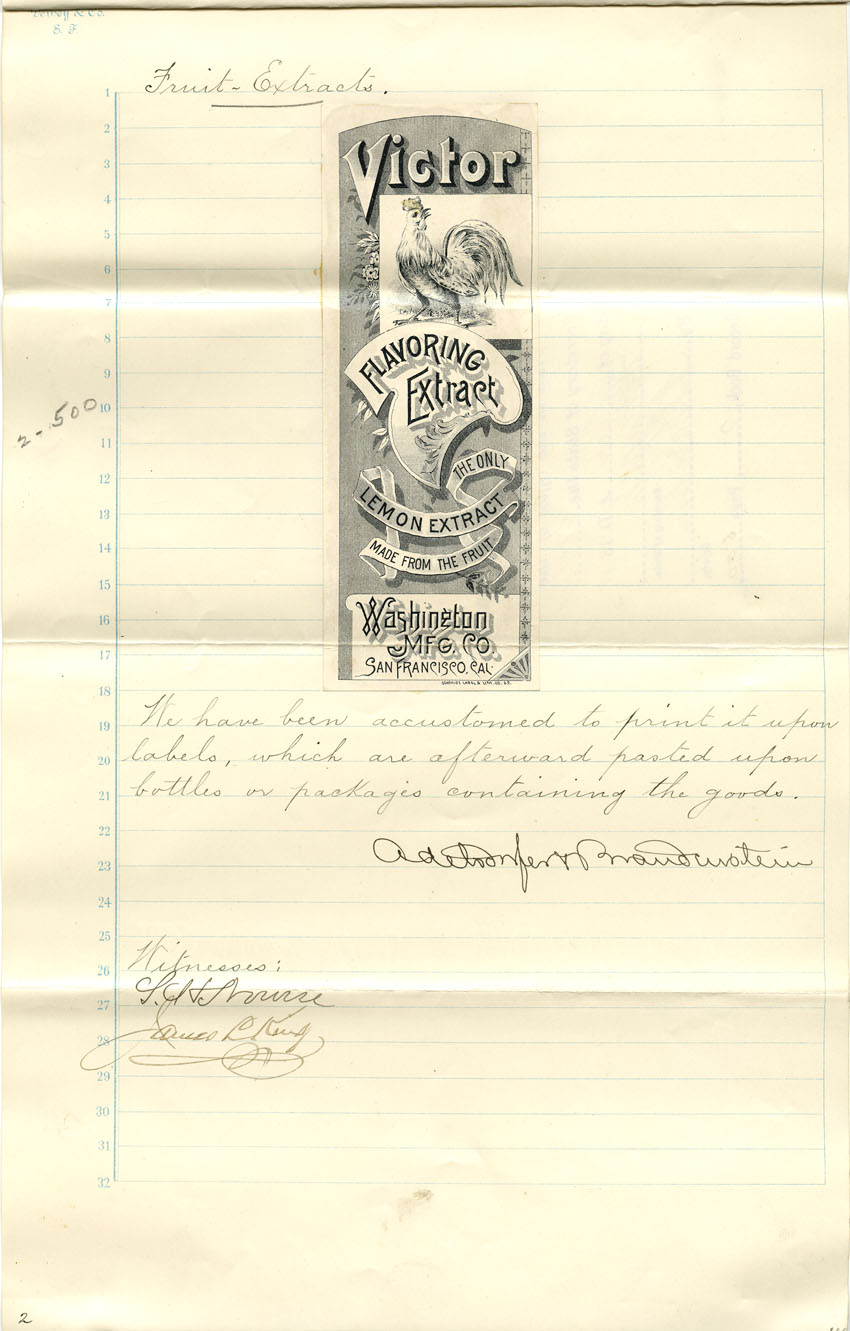 Dewey & Co.
S. F.
Fruit-Extracts.
Victor
FLAVORING
Extract
THE ONLY
LEMON EXTRACT
MADE FROM THE FRUIT
Washington
MFG. CO.
SAN FRANCISCO, CAL.
SCHMIDT LABEL & LITH. CO. S.F.
1
2
3
4
5
6
7
8
9
10
11
12
13
14
15
16
17
18
19
20
21
22
23
24
25
26
27
28
29
30
31
32
2-500
We have been accustomed to print it upon
labels, which are afterward pasted upon
bottles or packages containing the goods.
Adelsdorfer & Brandenstein
Witnesses:
S. H. Nourse
James L. King
2